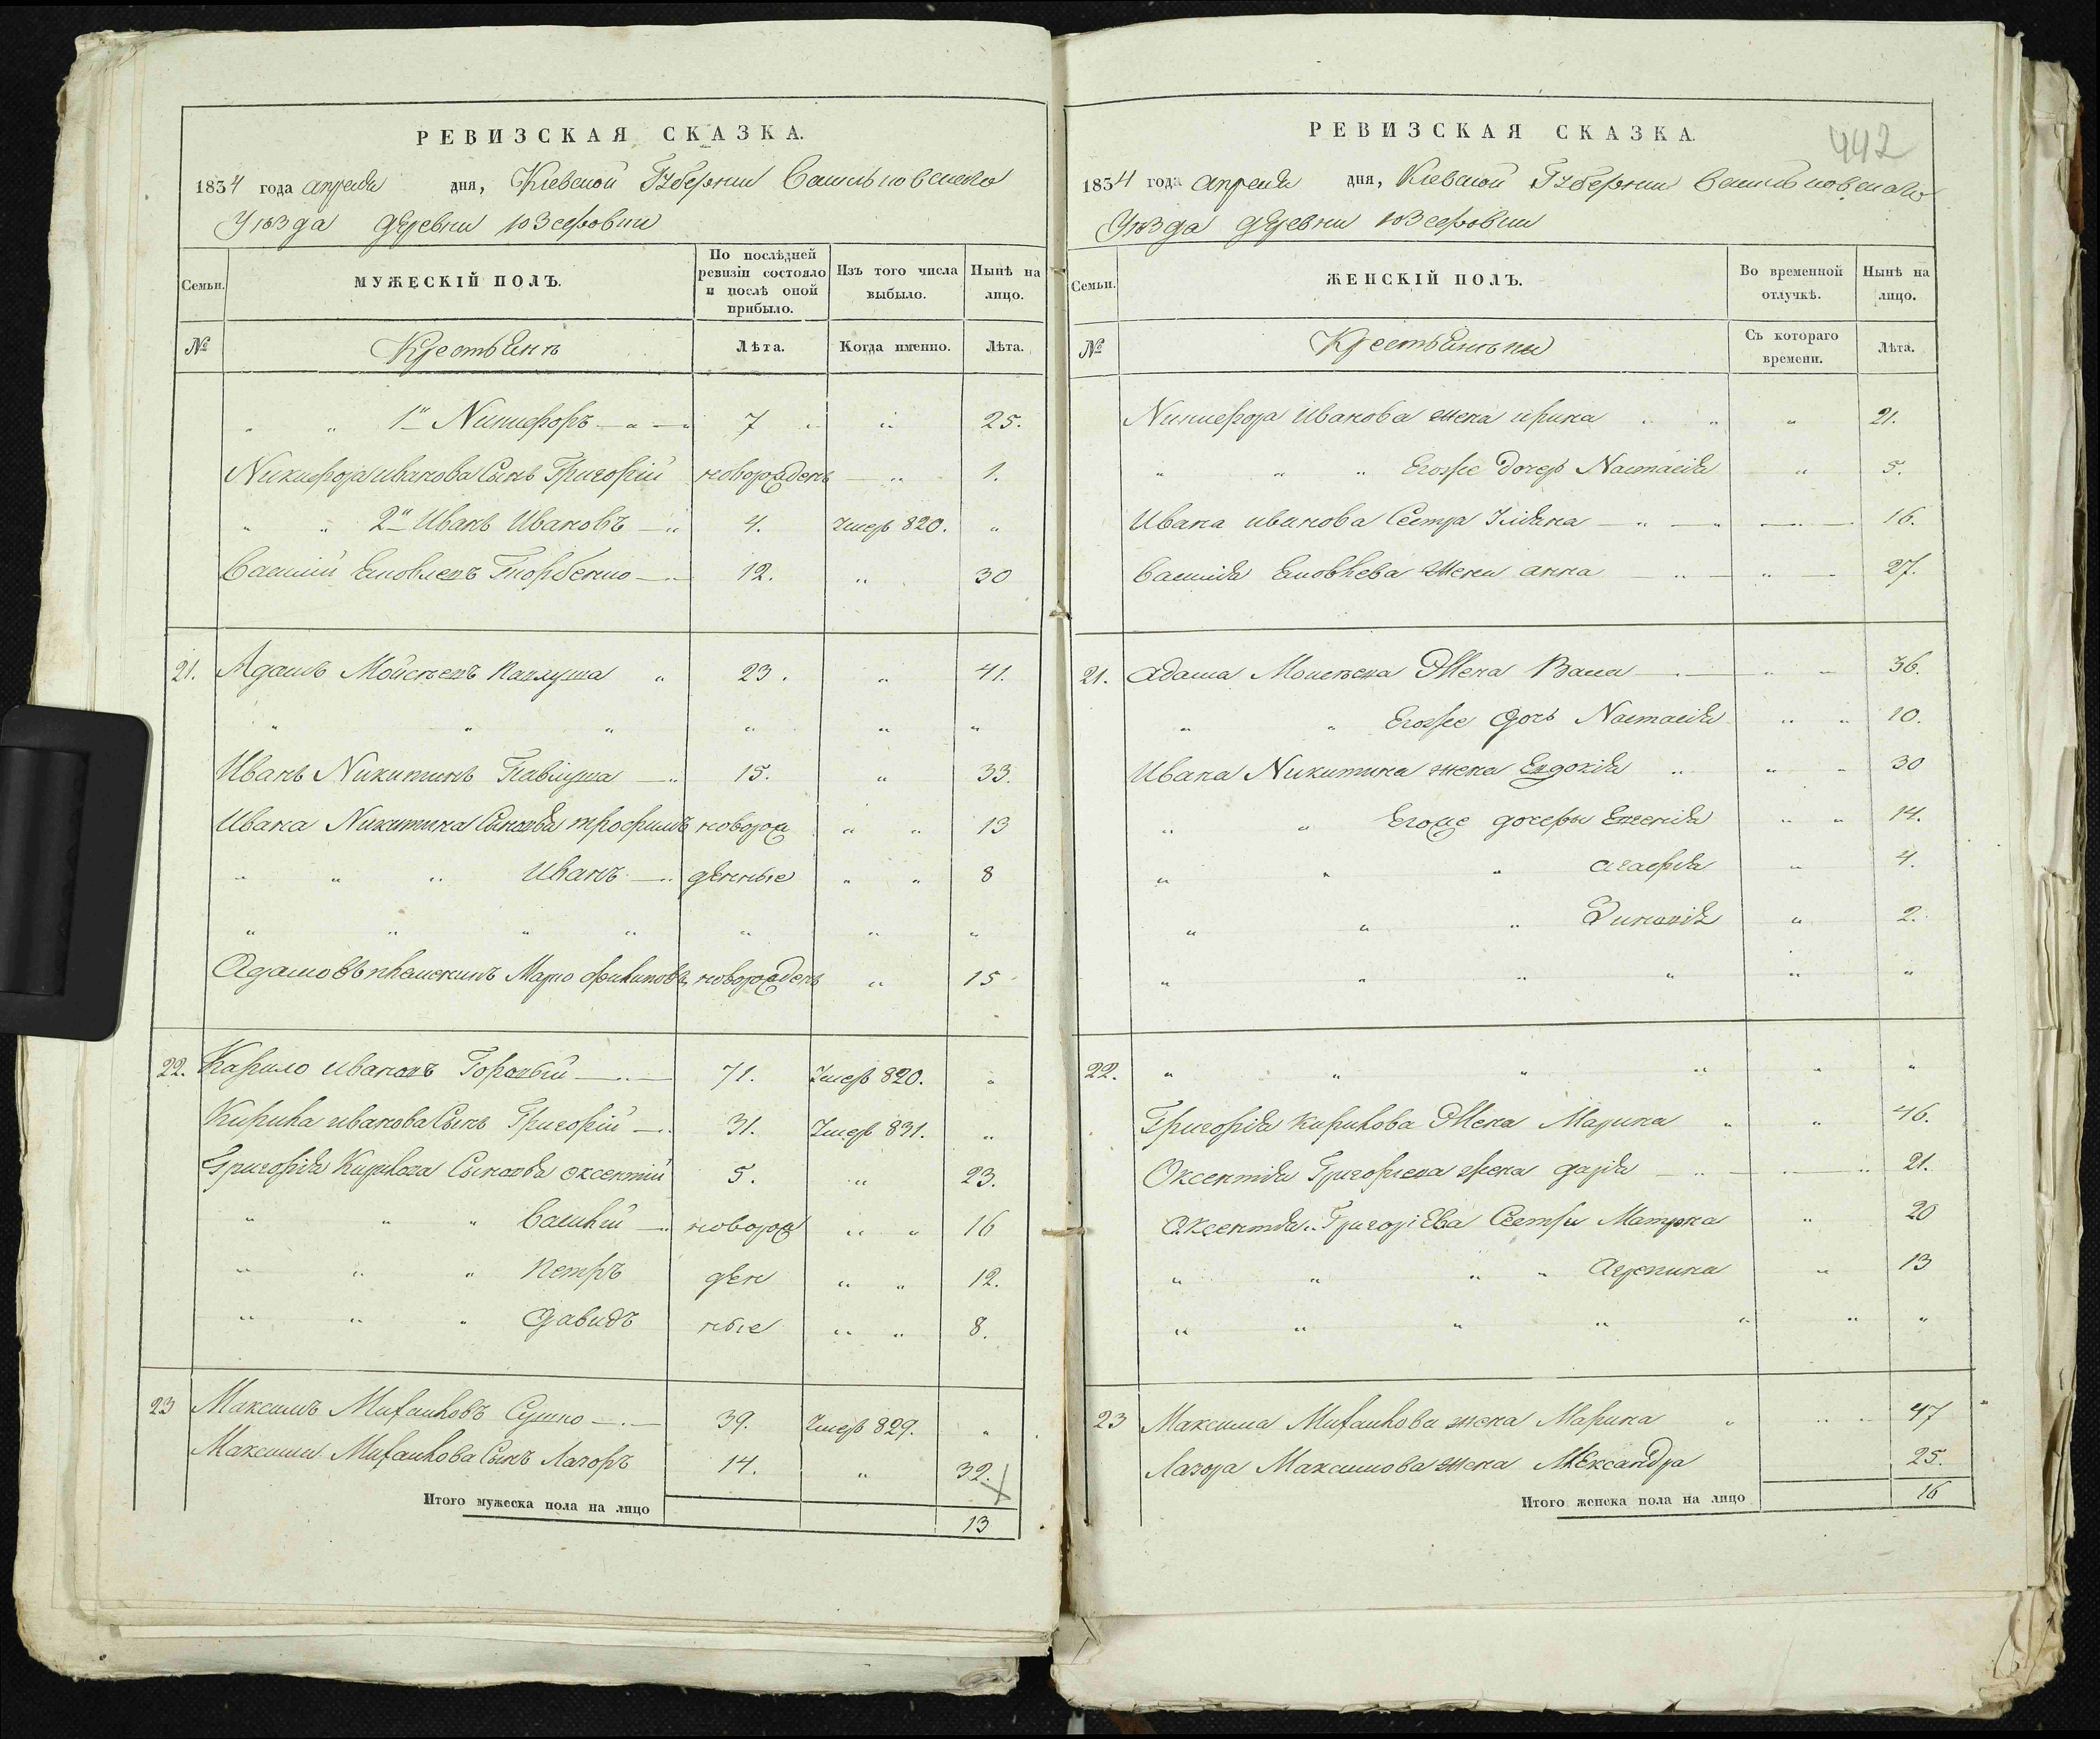 РЕВИЗСКАЯ СКАЗКА.
1834 года апреля дня, Киевской Губернии Васильковскаго
Уѣзда деревни Юзефовки
Семьи. МУЖЕСКІЙ ПОЛЪ. По послѣдней ревизіи состояло и послѣ оной прибыло. Изъ того числа выбыло. Нынѣ на лицо.
№ Крестьянъ Лѣта. Когда именно. Лѣта.
" " 1й Никифоръ 7 " 25.
Никифора Иванова Сынъ Григорій новорожденъ " 1.
" " 2й Иванъ Ивановъ 4. Умеръ 820. "
Василий Яковлевъ 12. " 30
21. Адамъ Мойсѣевъ Павлуша " 23. " 41.
" " " " " "
Иванъ Никитинъ Павлуша 15. " 33.
Ивана Никитина Сыновья трофимъ новорож " " 13
" " " Иванъ денные " " 8
" " " " " " "
Адамовъ племеникъ Марко филиповъ новорожденъ " 15
22. Карило Ивановъ Горовый 71. Умеръ 820. "
Кирила иванова Сынъ Григорій 31. Умеръ 831. "
Григорія Кирилова Сыновья оксентий 5. " 23.
" " " Василій новорож " " 16
" " " петръ ден " " 12.
" " " давидъ ные " " 8.
23 Максимъ Михайловъ Сушко 39. Умеръ 829. "
Максима Михайлова Сынъ Лазоръ 14. " 32.
Итого мужеска пола на лицо 13
442
РЕВИЗСКАЯ СКАЗКА.
1834 года апреля дня, Киевской Губернии Васильковскаго
Уѣзда деревни Юзефовки
Семьи. ЖЕНСКІЙ ПОЛЪ. Во временной отлучкѣ. Нынѣ на лицо.
№ Крестьянъки Съ котораго времени. Лѣта.
Никифора Иванова жена ирина " " " 21.
" " " Егоже дочерь Настасія " 5.
Ивана иванова Сестра Уліяна " " " 16.
Василія Яковлева жена анна " " 27.
21. адама Моисѣева Жена " " 36.
" " Егоже дочь Настасія " " 10.
Ивана Никитина жена Евдокія " " " 30
" " Егоже дочеры " " 14.
" " " агафія " 4.
" " " " 2.
" " " " " "
22. " " " " " "
Григорія кирилова Жена Марина " " 46.
Оксентія Григориева жена дарія " " " 21.
оксентія Григориева Сестры Матрона " 20
" " " " агрепина " 13
" " " " " " "
23 Максима Михайлова жена Марина " " " 47
Лазора Максимова жена Александра 25.
Итого женска пола на лицо 16